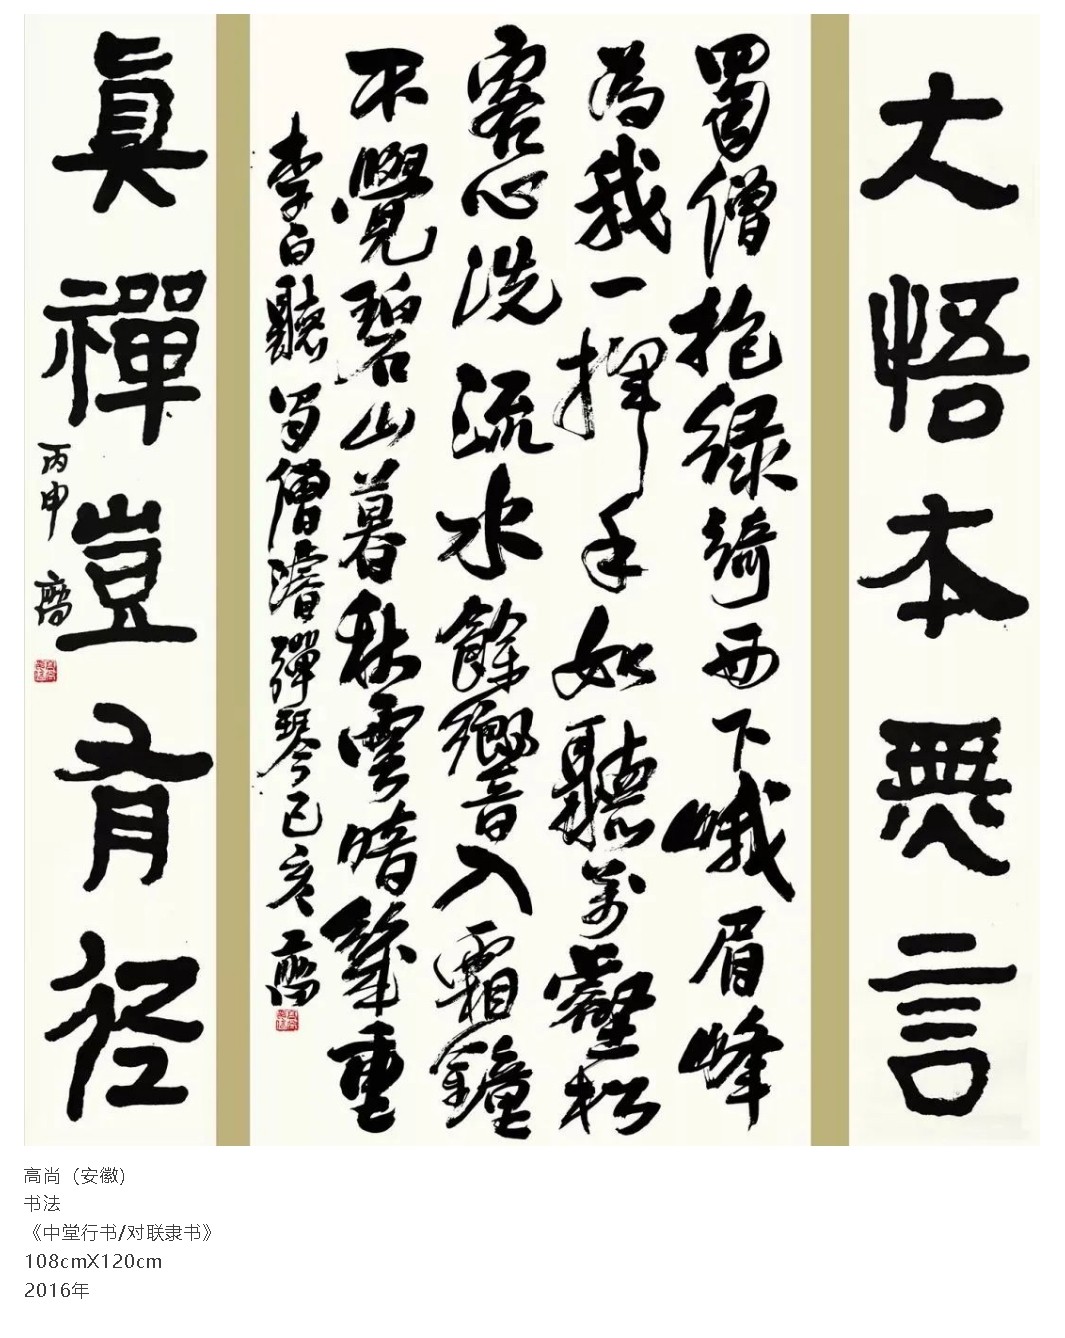 大悟本無言
蜀僧抱緑綺西下峨眉峰
為我一揮手如聽萬壑松
客心洗流水餘響入霜鐘
不覺碧山暮秋雲暗幾重
李白聽蜀僧濬彈琴己亥
真禪豈有徑
丙申
高尚（安徽）
书法
《中堂行书/对联隶书》
108cmX120cm
2016年